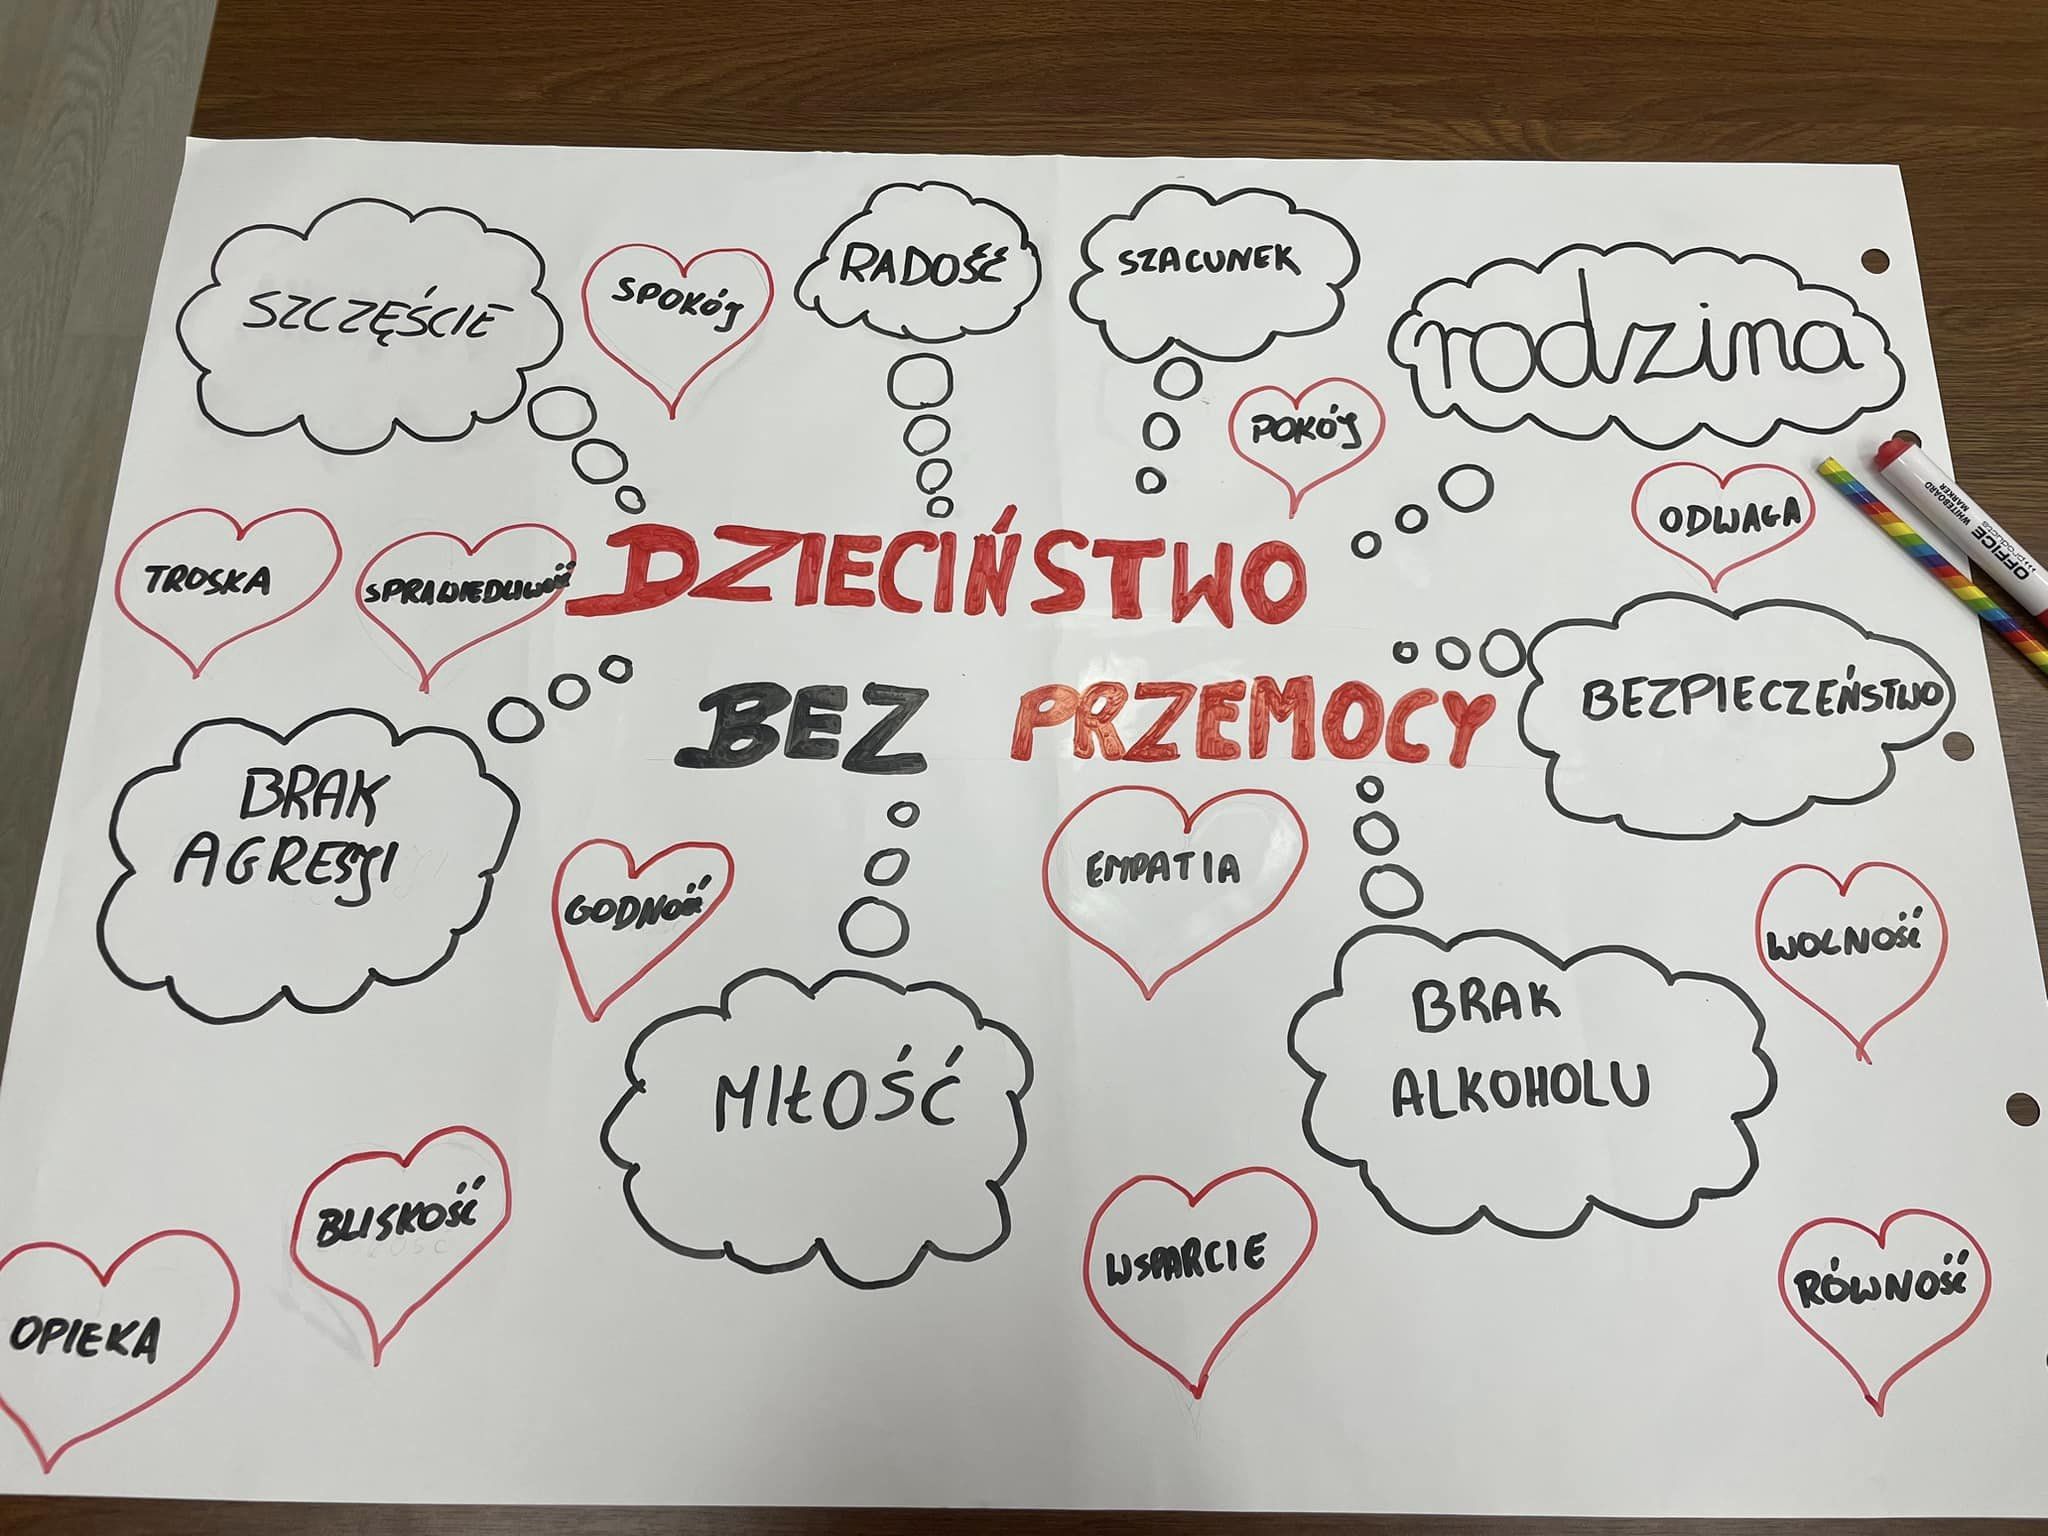 SZCZĘŚCIE
SPOKÓJ
RADOŚĆ
SZACUNEK
rodzina
POKÓJ
ODWAGA
OFFICE
products
WHITEBOARD
MARKER
TROSKA
SPRAWIEDLIWOŚĆ
DZIECIŃSTWO
BEZ PRZEMOCY
BEZPIECZEŃSTWO
BRAK
AGRESJI
GODNOŚĆ
EMPATIA
WOLNOŚĆ
MIŁOŚĆ
BRAK
ALKOHOLU
BLISKOŚĆ
OPIEKA
WSPARCIE
RÓWNOŚĆ